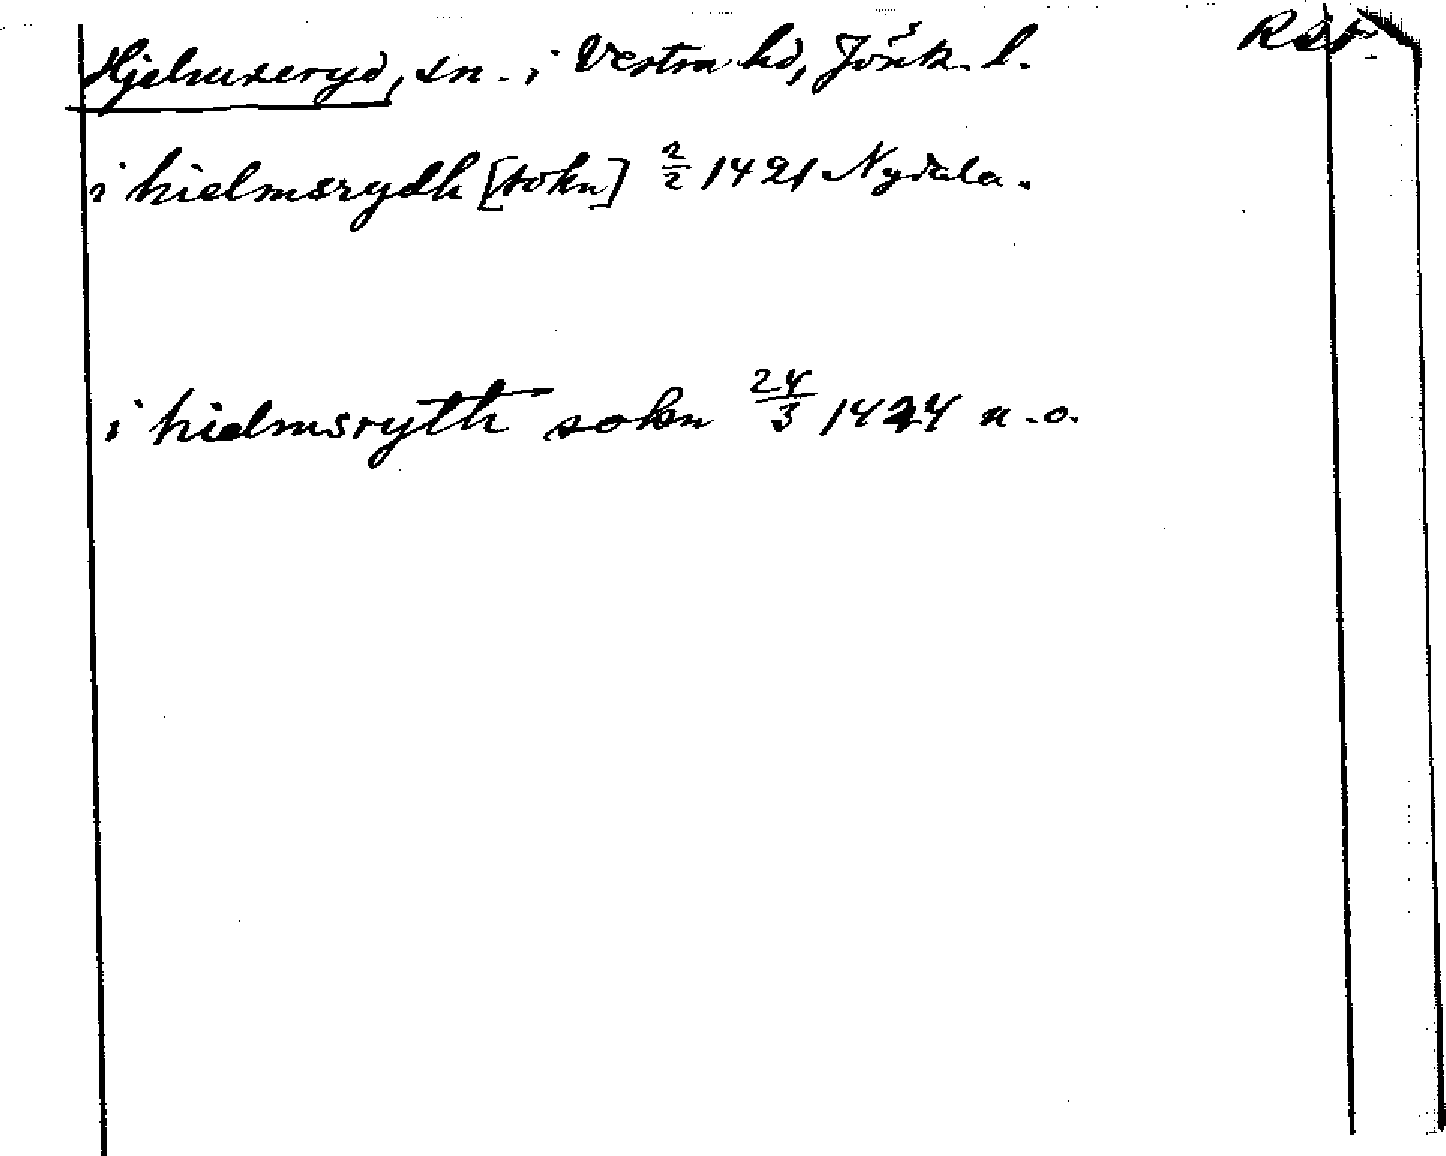 Hjelmseryd, sn. i Vestra hd, Jönk. l.
i hielmsrydh [sokn] 2/2 1421 Nydala.
i hielmsryth sokn 24/3 1424 n.o.